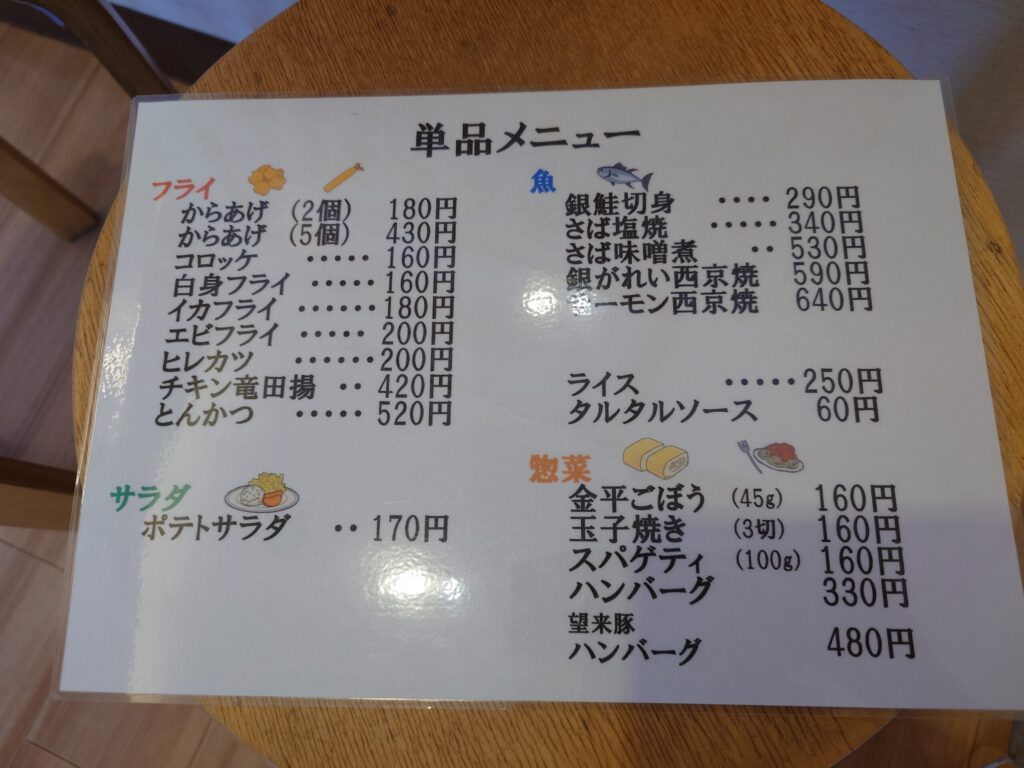 単品メニュー
フライ
からあげ (2個) 180円
からあげ (5個) 430円
コロッケ ・・・・・ 160円
白身フライ ・・・・・ 160円
イカフライ ・・・・・・ 180円
エビフライ ・・・・・ 200円
ヒレカツ ・・・・・・ 200円
チキン竜田揚 ・・ 420円
とんかつ ・・・・・ 520円
サラダ
ポテトサラダ ・・ 170円
魚
銀鮭切身 ・・・・ 290円
さば塩焼 ・・・・・ 340円
さば味噌煮 ・・ 530円
銀がれい西京焼 590円
サーモン西京焼 640円
ライス ・・・・・ 250円
タルタルソース 60円
惣菜
金平ごぼう (45g) 160円
玉子焼き (3切) 160円
スパゲティ (100g) 160円
ハンバーグ 330円
望来豚
ハンバーグ 480円